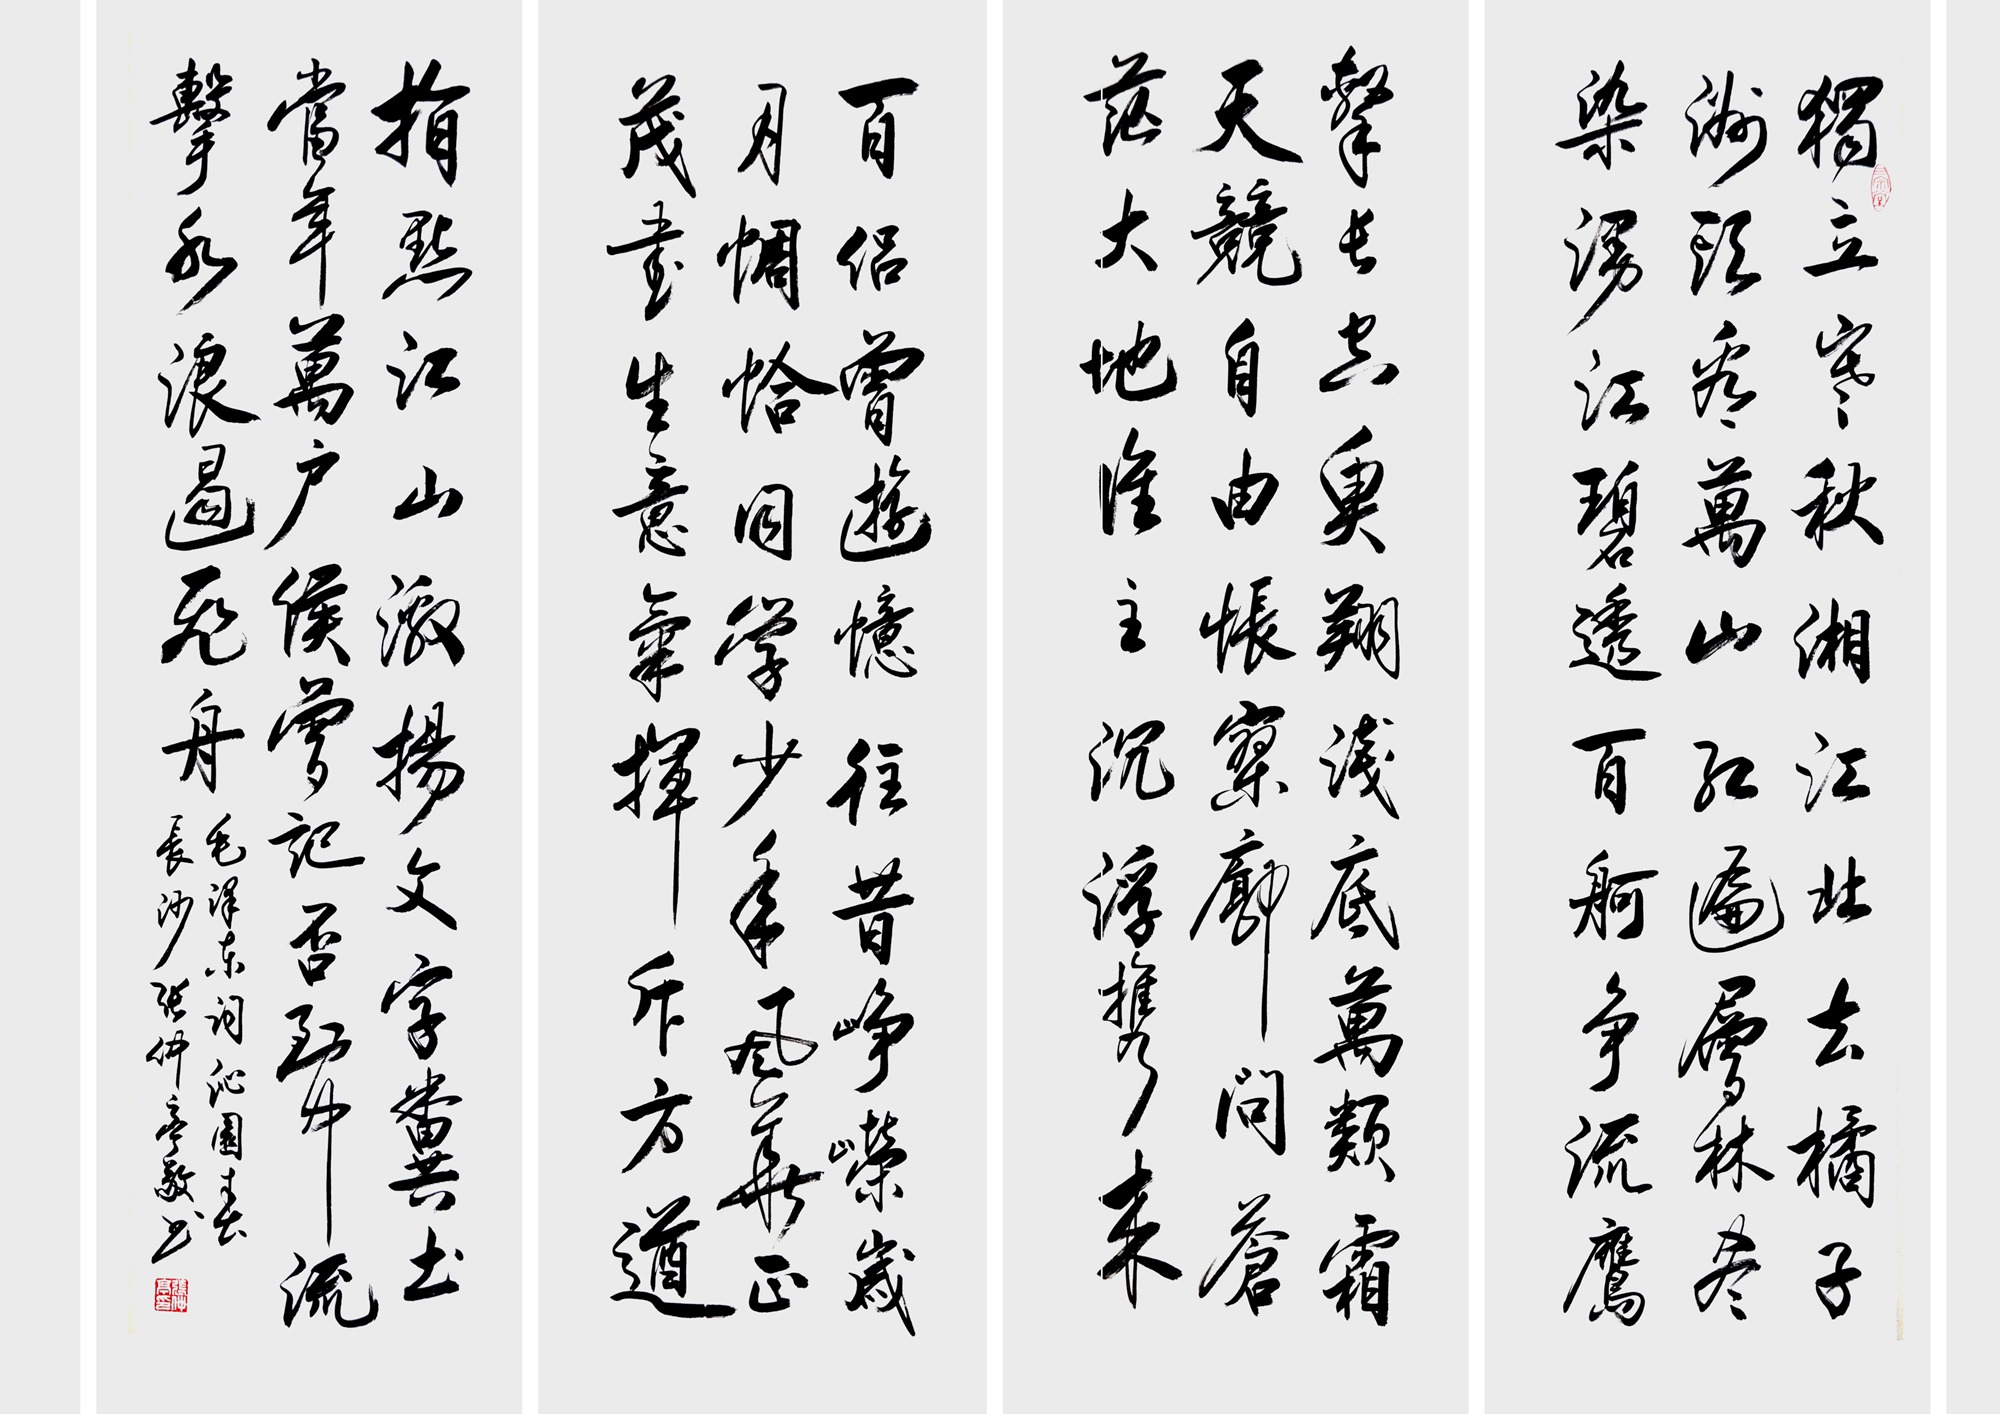 獨立寒秋湘江北去橘子
洲頭看萬山紅遍層林盡
染漫江碧透百舸争流鷹
擊長空魚翔淺底萬類霜
天競自由悵寥廓問蒼
茫大地誰主沉浮攜来
百侣曾遊憶往昔崢嶸歲
月惆恰同學少年風華正
茂書生意氣揮斥方遒
指點江山激揚文字糞土
當年萬户侯曾記否到中流
擊水浪遏飛舟
毛澤東词沁園春
長沙張仲亭敬书
張仲亭印